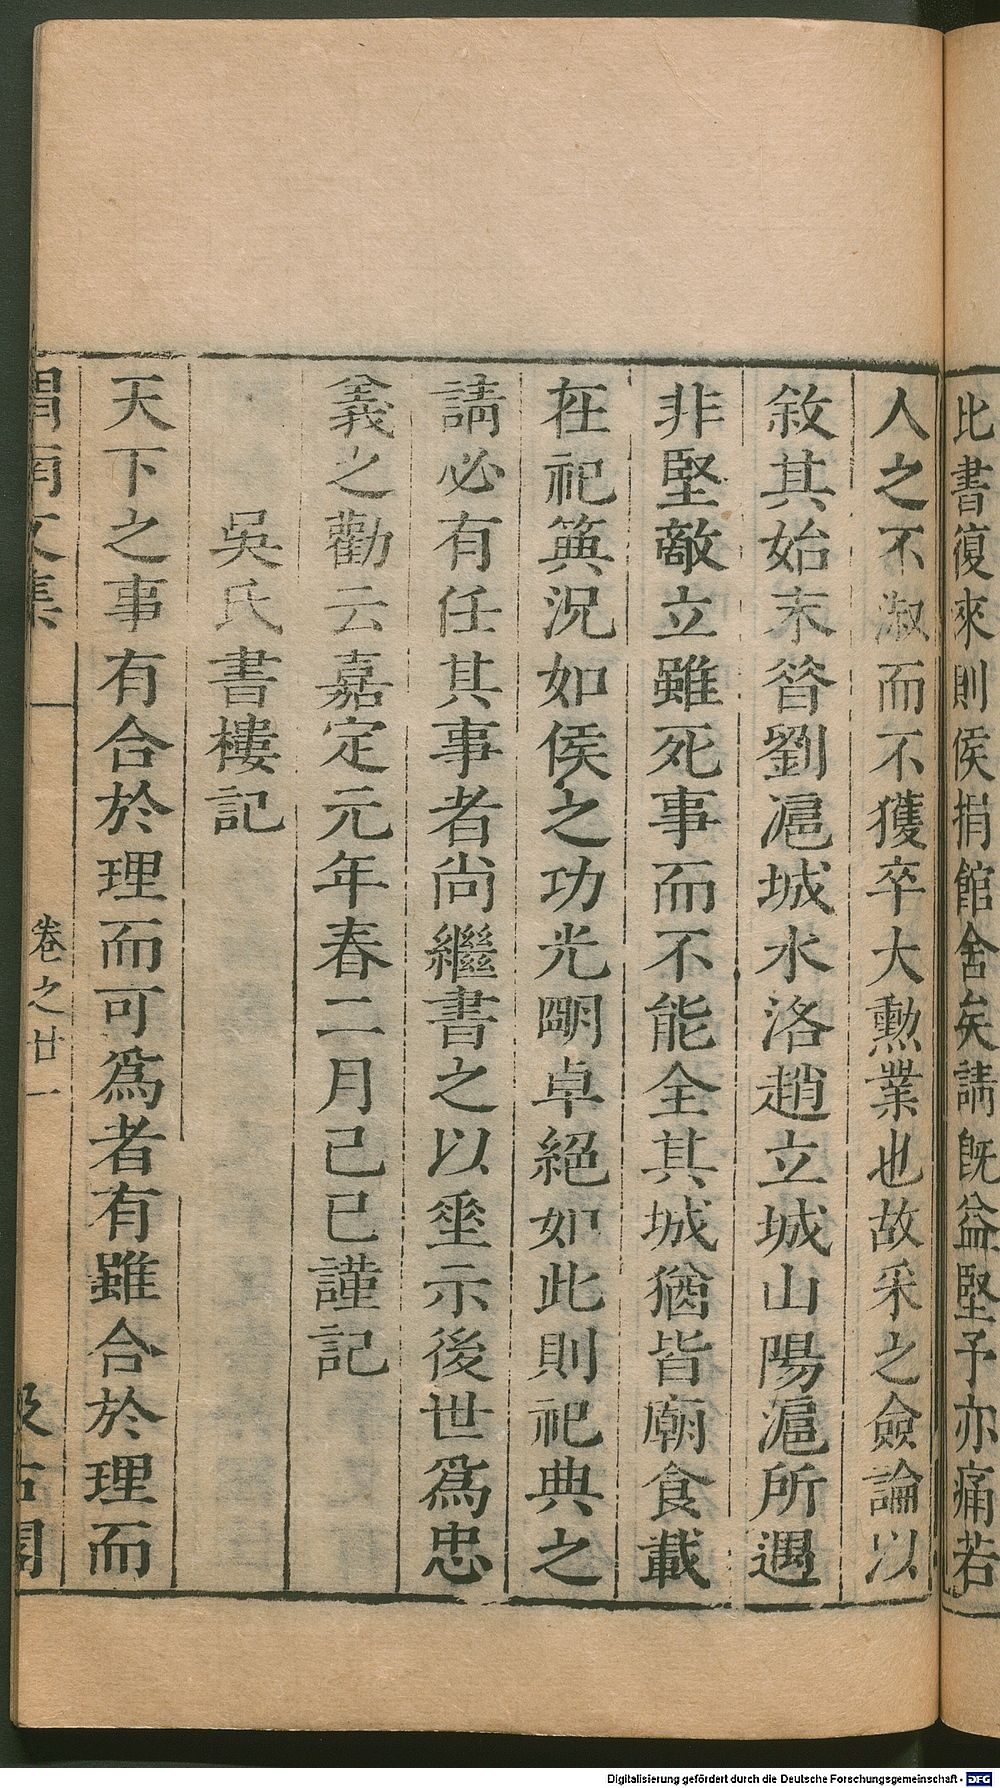 比書復來則侯捐館舍矣請旣益堅予亦痛若
人之不淑而不獲卒大勲業也故采之僉論以
敘其始末昝劉滬城水洛趙立城山陽滬所遇
非堅敵立雖死事而不能全其城猶皆廟食載
在祀簨況如侯之功光朙卓絕如此則祀典之
請必有任其事者尚繼書之以埀示後世爲忠
義之勸云嘉定元年春二月己巳謹記
吳氏書樓記
天下之事有合於理而可爲者有雖合於理而
渭南文集
卷之廿一
汲古閣
Digitalisierung gefördert durch die Deutsche Forschungsgemeinschaft - DFG